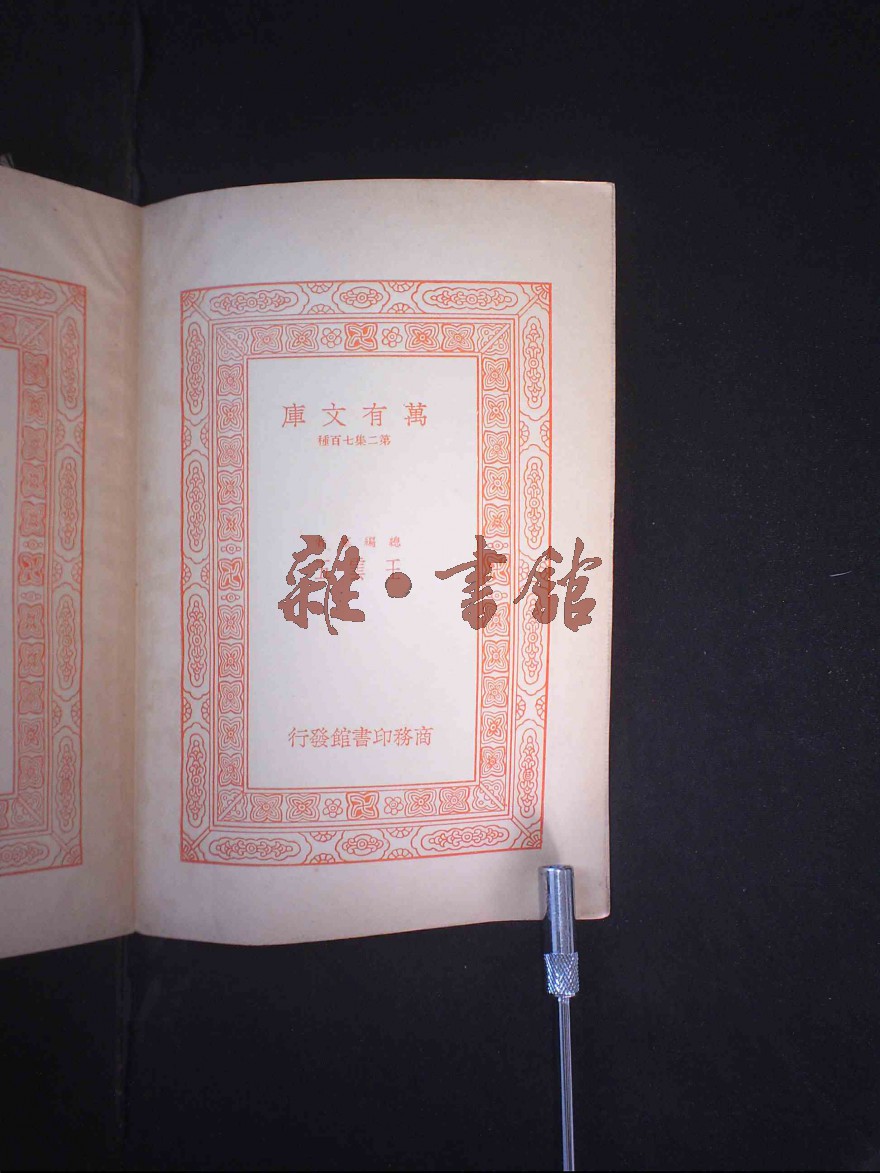 萬有文庫
第二集七百種
總編
王
雜·書館
商務印書館發行